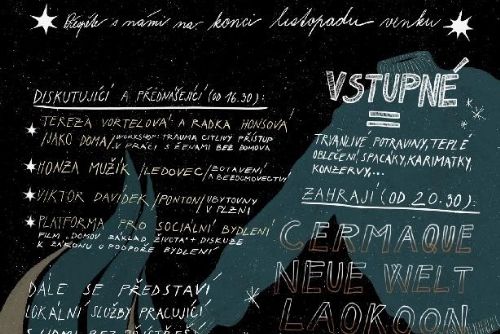 Přežijte s námi na konci listopadu venku
DISKUTUJÍCÍ A PŘEDNÁŠEJÍCÍ (OD 16.30):
TEREZA VORTELOVÁ A RADKA HONSOVÁ
/JAKO DOMA/WORKSHOP: TRAUMA CITLIVÝ PŘÍSTUP
V PRÁCI S ŽENAMI BEZ DOMOVA
HONZA MUŽÍK/LEDOVEC/ZOTAVENÍ
A BEZDOMOVECTVÍ
VIKTOR DAVÍDEK/PONTON/UBYTOVNY
V PLZNI
PLATFORMA PRO SOCIÁLNÍ BYDLENÍ
FILM „DOMOV ZÁKLAD ŽIVOTA" + DISKUZE
K ZÁKONU O PODPOŘE BYDLENÍ
DÁLE SE PŘEDSTAVÍ
LOKÁLNÍ SLUŽBY PRACUJÍCÍ
S LIDMI BEZ PŘÍSTŘEŠÍ
VSTUPNÉ
=
TRVANLIVÉ POTRAVINY, TEPLÉ
OBLEČENÍ, SPACÁKY, KARIMATKY,
KONZERVY,...
ZAHRAJÍ (OD 20.30):
CERMAQUE
NEUE WELT
LAOKOON